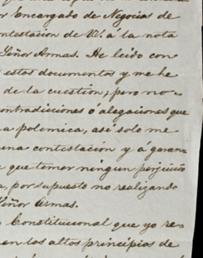 r Encargado de Negocios de
ontestacion de W. á la nota
eñor Armas. He leido con
estos documentos y me he
de la cuestion; pero no
ontradiciones ó alegaciones que
a polemica, asi solo me
una contestacion y á garan
que temer ningun perjuicio
a, por supuesto no realizando
eñor Armas.
Constitucional que yo re
en los altos principios de